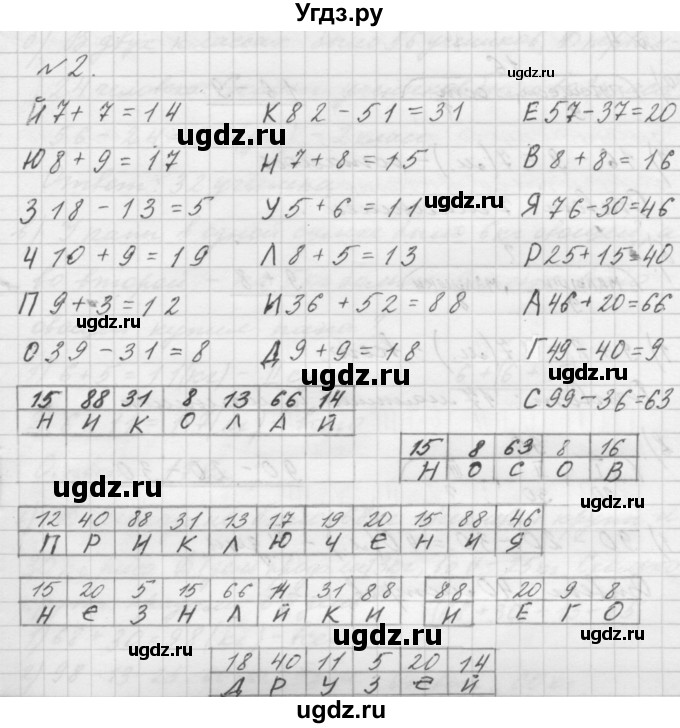 Угдз.ру
№2.
Й 7+7=14 К 82-51=31 Е 57-37=20
Ю 8+9=17 Н 7+8=15 В 8+8=16
З 18-13=5 У 5+6=11 Я 76-30=46
Ч 10+9=19 Л 8+5=13 Р 25+15=40
П 9+3=12 И 36+52=88 А 46+20=66
О 39-31=8 Д 9+9=18 Г 49-40=9
С 99-36=63
15 88 31 8 13 66 14
Н И К О Л А Й
15 8 63 8 16
Н О С О В
12 40 88 31 13 17 19 20 15 88 46
П Р И К Л Ю Ч Е Н И Я
15 20 5 15 66 14 31 88 88 20 9 8
Н Е З Н А Й К И И Е Г О
18 40 11 5 20 14
Д Р У З Е Й
ugdz.ru
ugdz.ru
ugdz.ru
ugdz.ru
ugdz.ru
ugdz.ru
ugdz.ru
ugdz.ru
ugdz.ru
ugdz.ru
ugdz.ru